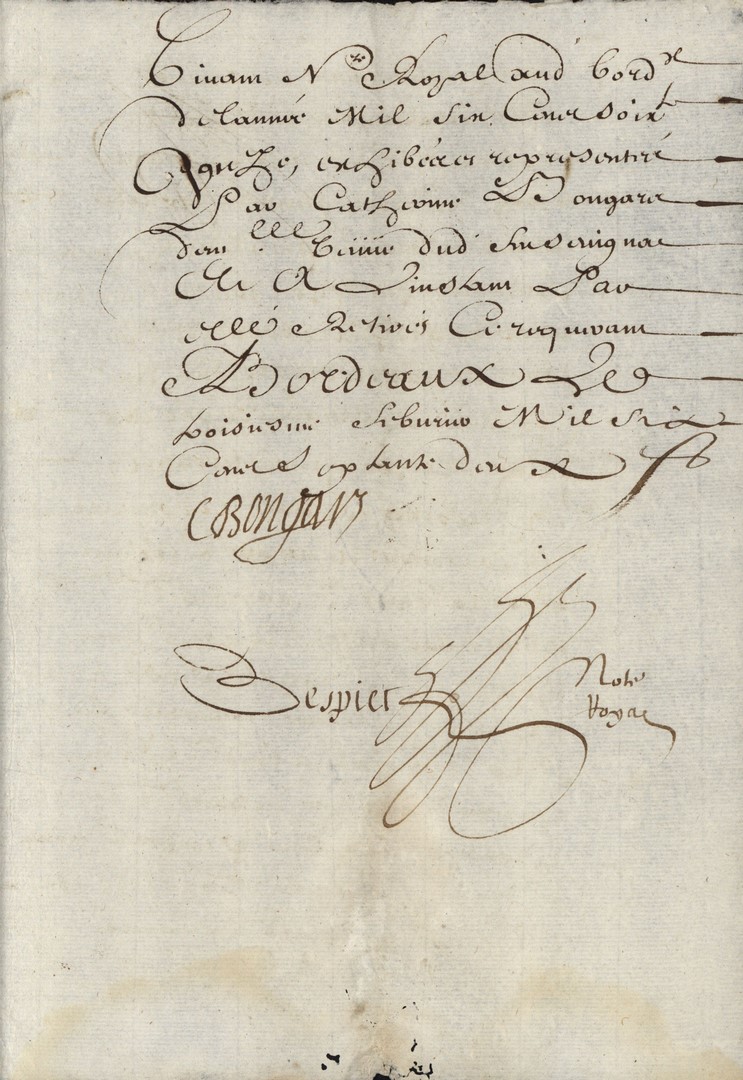 Nre Royal aud bordx
de lannée Mil Six Cens Soixte
exhibée et representée
Par Catherine Bongard
dam lle dud feu
Et A Linstam Par
elle Retirés Ce requeram
A Bordeaux Le
troisiesme feburier Mil Six
Cens Septante deux
CBongars
Despiet Note
Royal